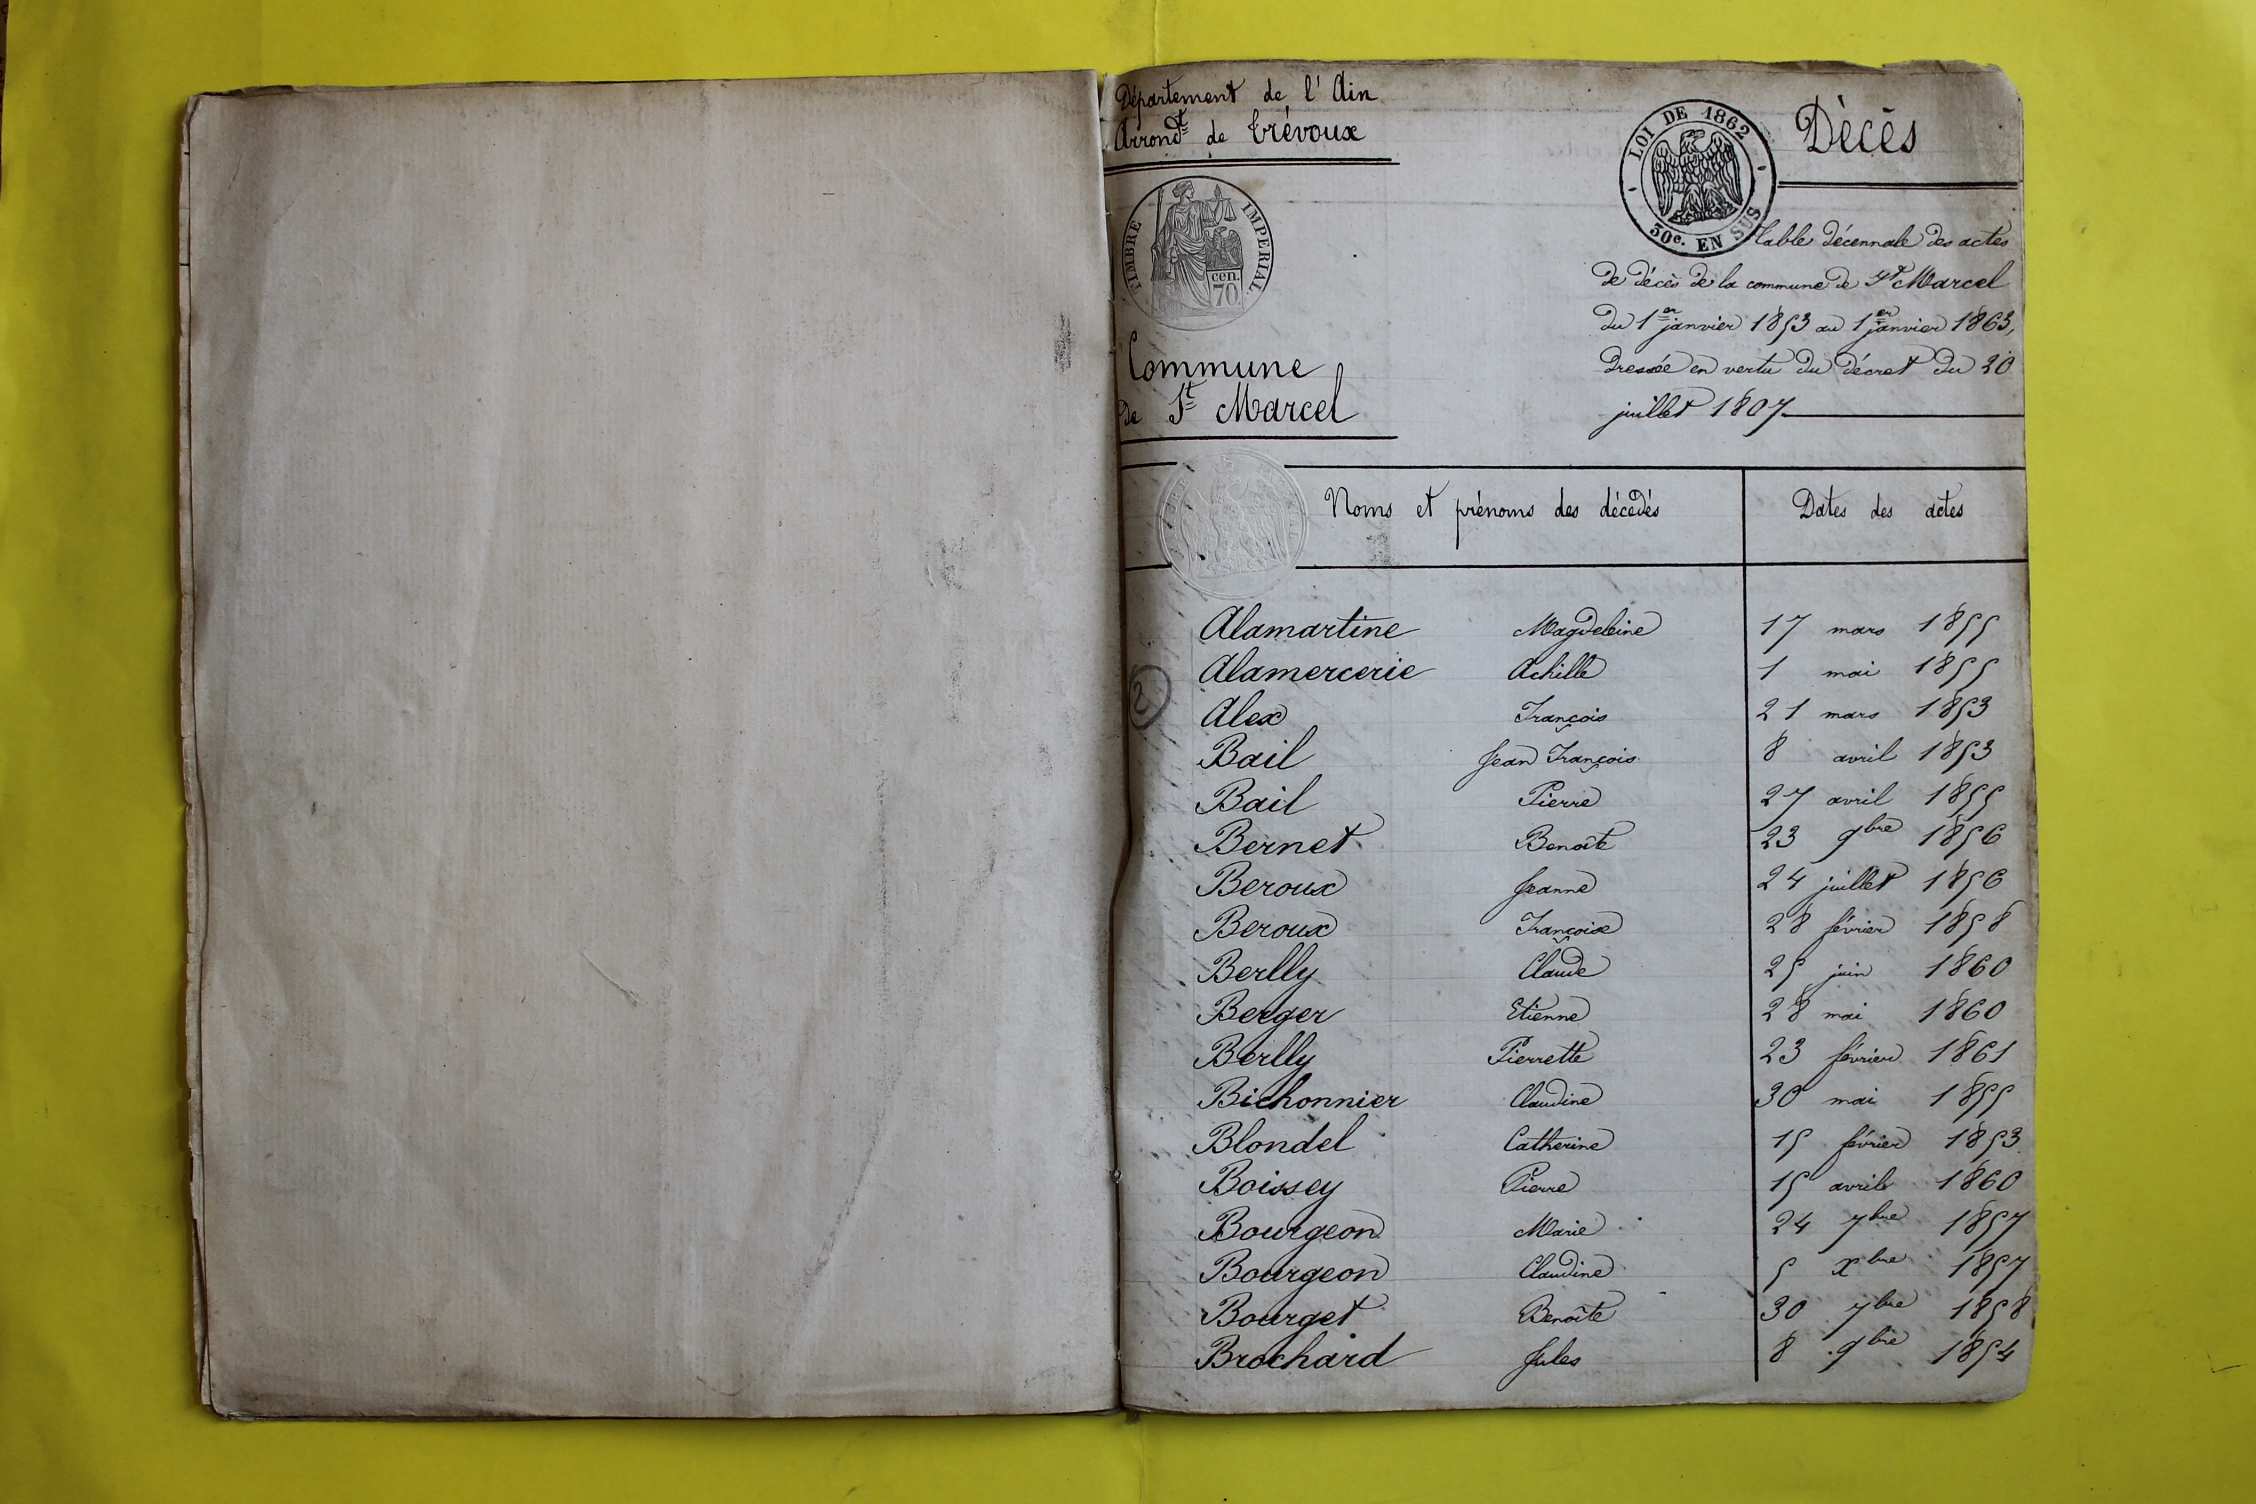 Département de l'Ain
Arrond.t de Trévoux
TIMBRE IMPERIAL
cen.
70
Commune
de St Marcel
LOI DE 1862
50c. EN SUS
Décès
Table décennale des actes
de décès de la commune de St Marcel
du 1er janvier 1853 au 1er janvier 1863,
dressée en vertu du décret du 20
juillet 1807
Noms et prénoms des décédés Dates des actes
2
Alamartine Magdeleine 17 mars 1855
Alamercerie Achille 1 mai 1855
Alex François 21 mars 1853
Bail Jean François 8 avril 1853
Bail Pierre 27 avril 1855
Bernet Benoîte 23 9bre 1856
Beroux Jeanne 24 juillet 1856
Beroux Françoise 28 février 1858
Berlly Claude 25 juin 1860
Berger Etienne 28 mai 1860
Berlly Pierrette 23 février 1861
Bichonnier Claudine 30 mai 1855
Blondel Catherine 15 février 1853
Boissey Pierre 15 avril 1860
Bourgeon Marie 24 7bre 1857
Bourgeon Claudine 5 Xbre 1857
Bourget Benoîte 30 7bre 1858
Brochard Jules 8 9bre 1854